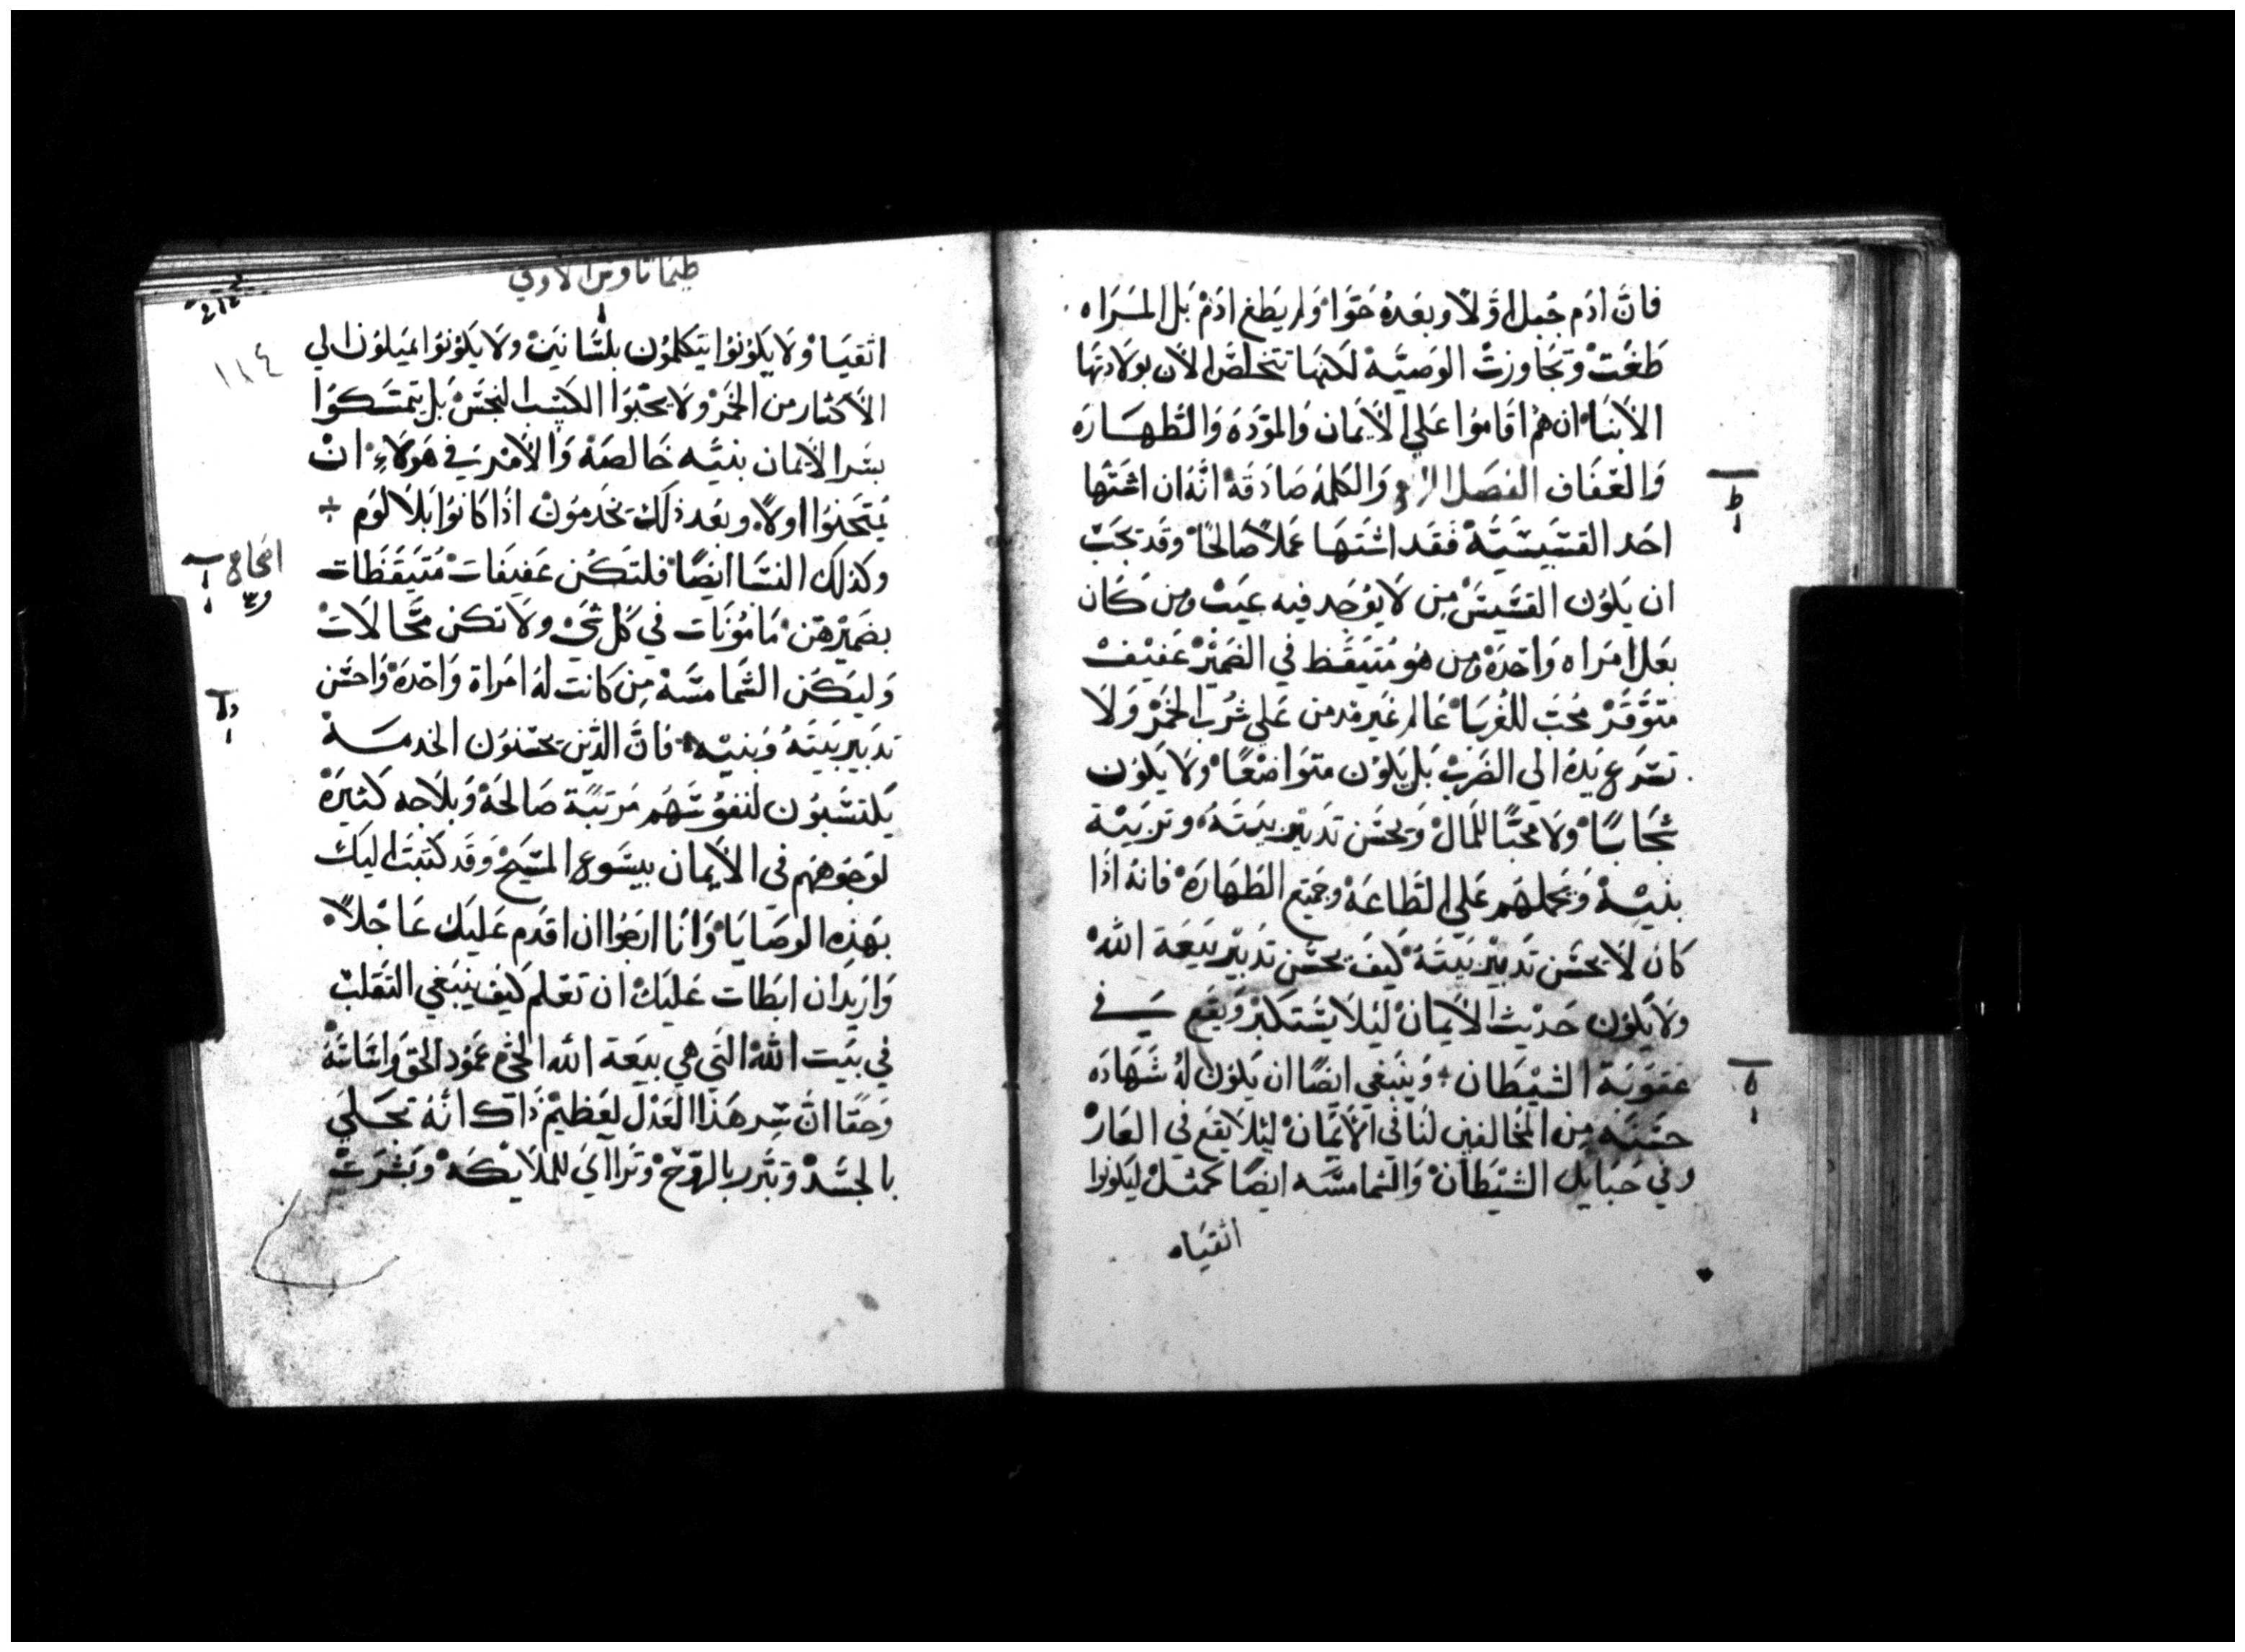 فانَّ ادَم جُبل اوَّلاً وبعَدهُ حَوَا وَلم يَطغ ادَمْ بَل المَرَاه
طَغَت وتجَاوزتْ الوَصيَّه لكنهَا تتخلصَ الان بولادتهَا
الابنَا ان همُ اقَاموُا عَلي الايمَان وَالموَدَه وَالطَهَارَه
وَالعَفَاف الفصَل الرابع وَالكلمهُ صَادَقَه انَّهُ ان اشتهَا
احَد القسَيسَيَّه فَقَد اشتَهَا عَملاً صَالحًا وقَد يجَبْ
ان يَكوُن القسَيسَ مِن لايوُجَد فيه عيَبْ ومن كَان
بعَل امرَاه وَاحَدَه ومن هوُ مُتيَقَظ في الضَميْر عَفيْف
متوَقَرْ مُحَبْ للغُربَا عَالم غيَر مدمن عَلي شُربَ الخَمرْ وَلا
تسَرع يَدهُ الي الضَربْ بَل يَكوُن متوَاضعًا ولا يَكوُن
شجَابًا ولا محبًا للمَال وَيحسَن تدَبيْر بيَتهُ وتربيَة
بنيْه وَيحملهَم عَلي الطَاعَه وجَميَع الطَهَارَه فانهُ اذَا
كان لا يحسَن تدَبيْر بيَتهُ كيَف يحسَن تدَبيْر بيَعَة اللهْ
ولا يَكوُن حَديْث الايمَان ليْلا يسَتكبرْ وَيقَع في
عقوبَة الشيْطَان وَينبَغي ايضًا ان يَكوُن لهُ شَهَادَه
حسَنَه من المخَالفين لنَا في الايمَان ليْلا يقَع في العَارْ
وفي حَبَايل الشيْطَان وَالشمامسَه ايضًا كمثلْ ليَكونوا
اتقيَاه
طيماتاوس الاولي
١٨٤
اتقيَا ولا يَكوُنوُا يتكلموُن بلسَانيَنْ ولا يَكوُنوُا يميَلوُن الي
الاكثار من الخَمرْ ولا يحَبوَا الكسَب النجَسْ بل يتمسَكوُا
بسَر الايمان بنيَّه خَالصَه وَالامْر في هَولاءِ انْ
يمُتحَنوُا اولاً وبعَد ذلَك يخَدموُنْ اذَا كانوُا بلا لوُم
وكذلَك النسَا ايضًا فلتكُن عَفيفَات مُتيَقَظَات
بضَميْرهَن مَامُوْنَات في كل شيْ ولا تكنْ محَالاتْ
وَليَكن الشمامسَه مِن كانت لهُ امرَاة وَاحَدَه وَاحسَن
تدبيْر بيَتهُ وَبنيْه فانَّ الذَين يحسَنوُن الخدمَه
يَكتسَبوُن لنفوُسَهَم مَرتبَة صَالحَه وَبلاجه كثيَرَه
لوَجَوههَم في الايمَان بيسَوع المسَيحْ وَقَد كتبَت اليَك
بهَذِه الوصَايَا وَانَا ارجَوا ان اقدَم عَليَك عَاجَلاً
وَاريَد ان ابطَات عَليَك ان تعَلم كيَف ينبَغي التقَلبْ
في بيَت اللهْ التي هي بيعَة الله الحَيْ عَموُد الحَق وَاسَاسَهُ
وَحَقًا انَّ سَر هَذا العَدْل لعَظيمْ ذَاك انَّهُ تجَلي
بالجسَدْ وتبَرر بالرَوحْ وترَااَيَ للملايكَه وَبشرَتْ